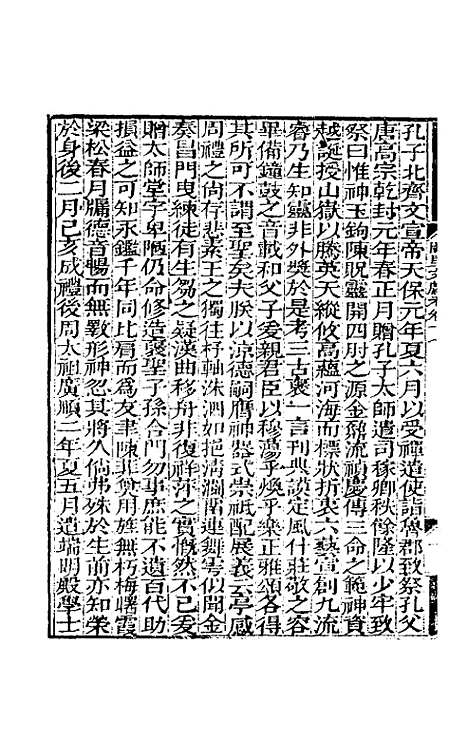 孔子北齊文宣帝天保元年夏六月以受禪遣使詣魯郡致祭孔父
唐高宗乾封元年春正月贈孔子太師遣司稼卿扶餘隆以少牢致
祭曰惟神玉鉤陳貺靈開四肘之源金鷚流禎慶傳三命之範神資
越誕授山嶽以騰英天縱攸高蘊河海而標狀折衷六藝宣創九流
睿乃生知靈非外獎於是考三古褒一言刊典謨定風什莊敬之容
畢備鐘鼓之音載和父子爰親君臣以穆蕩乎煥乎樂正雅頌各得
其所可不謂至聖矣夫朕以涼德嗣膺神器式崇祇配展義云亭感
周禮之尚存悲素王之獨往杼軸洙泗如挹清瀾留連舞雩似聞金
奏昌門曳練徒有生芻之疑漢曲移舟非復祥萍之實慨然不已爰
贈太師堂宇卑陋仍命修造褒聖子孫合門勿事庶能不遺百代助
損益之可知永鑑千年同比肩而為友聿陳菲奠用旌無朽梅曙霞
梁松春月牖德音暢而無斁形神忽其將久倘弗殊於生前亦知榮
於身後二月己亥成禮後周太祖廣順二年夏五月遣端明殿學士